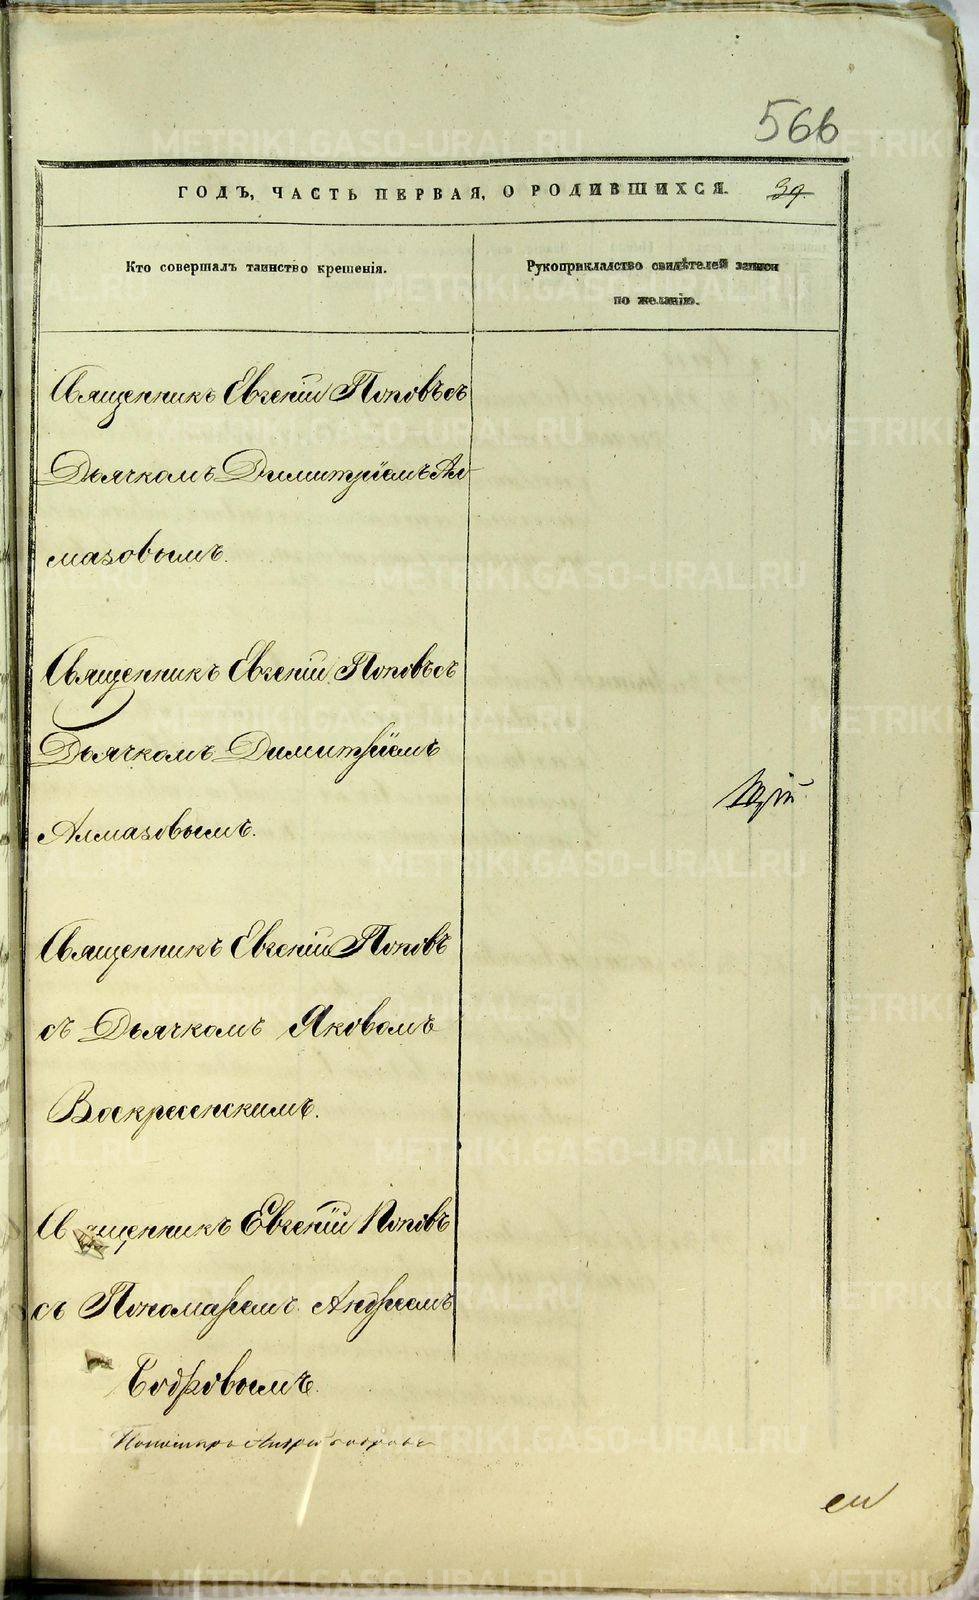 566
ГОДЪ, ЧАСТЬ ПЕРВАЯ, О РОДИВШИХСЯ. 39.
Кто совершалъ таинство крещенія.
Рукоприкладство свидѣтелей записи
по желанію.
Священникъ Евгеній Поповъ съ
Дьячкомъ Димитріемъ Ал-
мазовымъ.
Священникъ Евгеній Поповъ съ
Дьячкомъ Димитріемъ
Алмазовымъ.
Священникъ Евгеній Поповъ
съ Дьячкомъ Яковомъ
Воскресенскимъ.
Священникъ Евгеній Поповъ
съ Пономаремъ Андреемъ
Бодровымъ.
Пономарь Андрей Бодровъ
METRIKI.GASO-URAL.RU